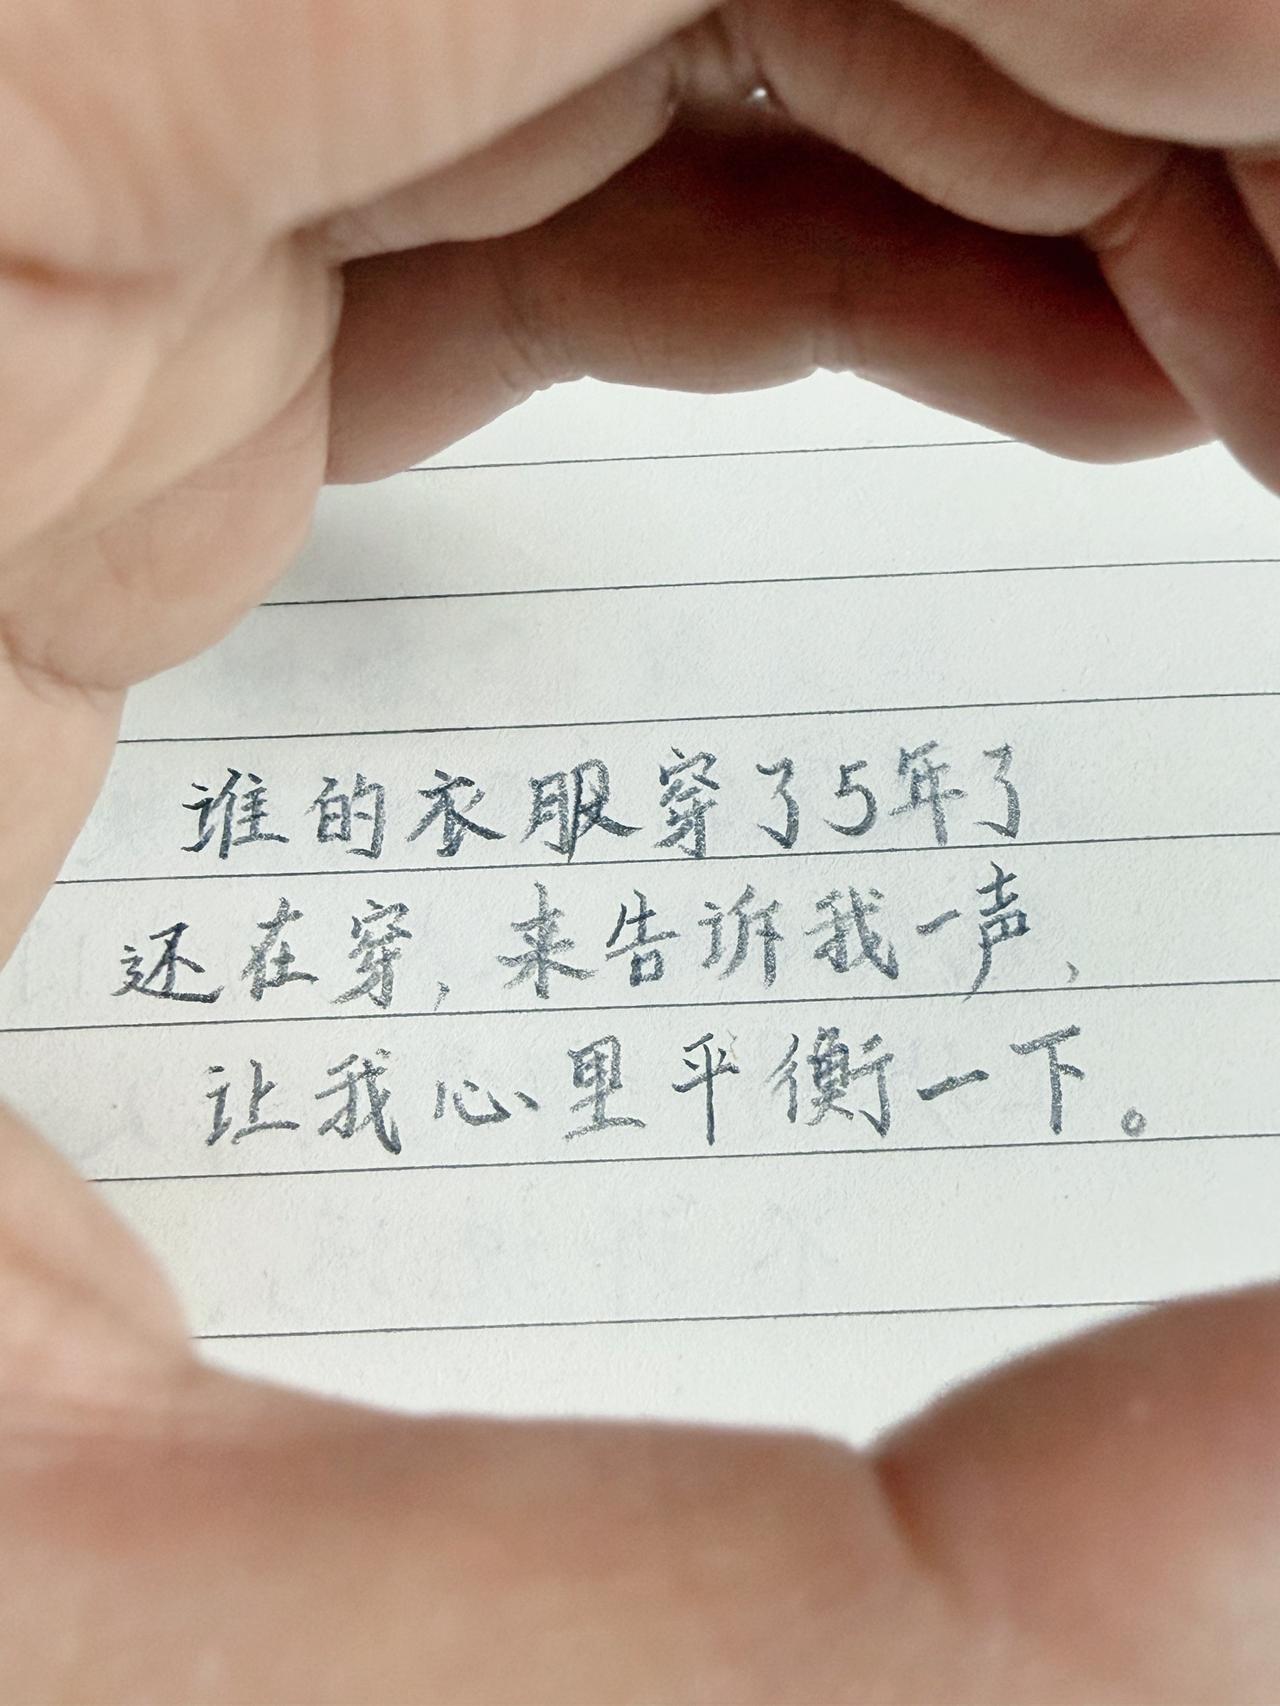 谁的衣服穿了5年了
还在穿，来告诉我一声，
让我心里平衡一下。